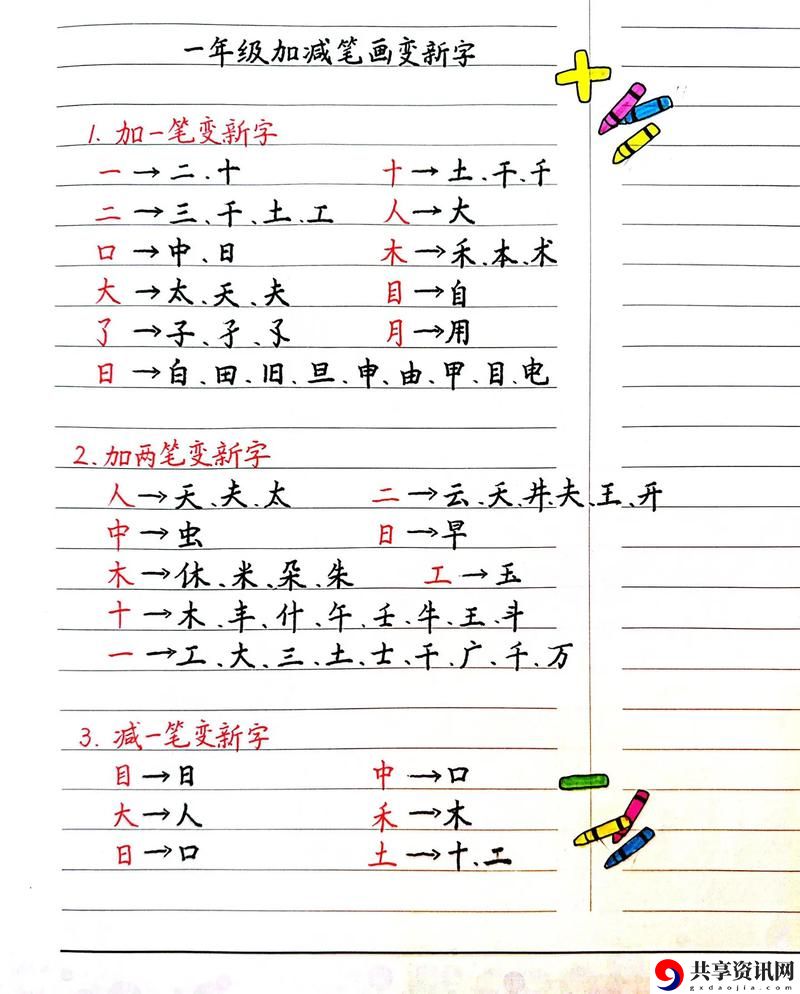 一年级加减笔画变新字
1. 加一笔变新字
一→二、十 十→土、干、千
二→三、干、土、工 人→大
口→中、日 木→禾、本、术
大→太、天、夫 目→自
了→子、孑、孓 月→用
日→白、田、旧、旦、申、由、甲、目、电
2. 加两笔变新字
人→天、夫、太 二→云、天、井、夫、王、开
中→虫 日→早
木→休、米、朵、朱 工→玉
十→木、丰、什、午、壬、牛、王、斗
一→工、大、三、土、士、干、广、千、万
3. 减一笔变新字
目→日 中→口
大→人 禾→木
日→口 土→十、工
共享资讯网
gxdaojia.com